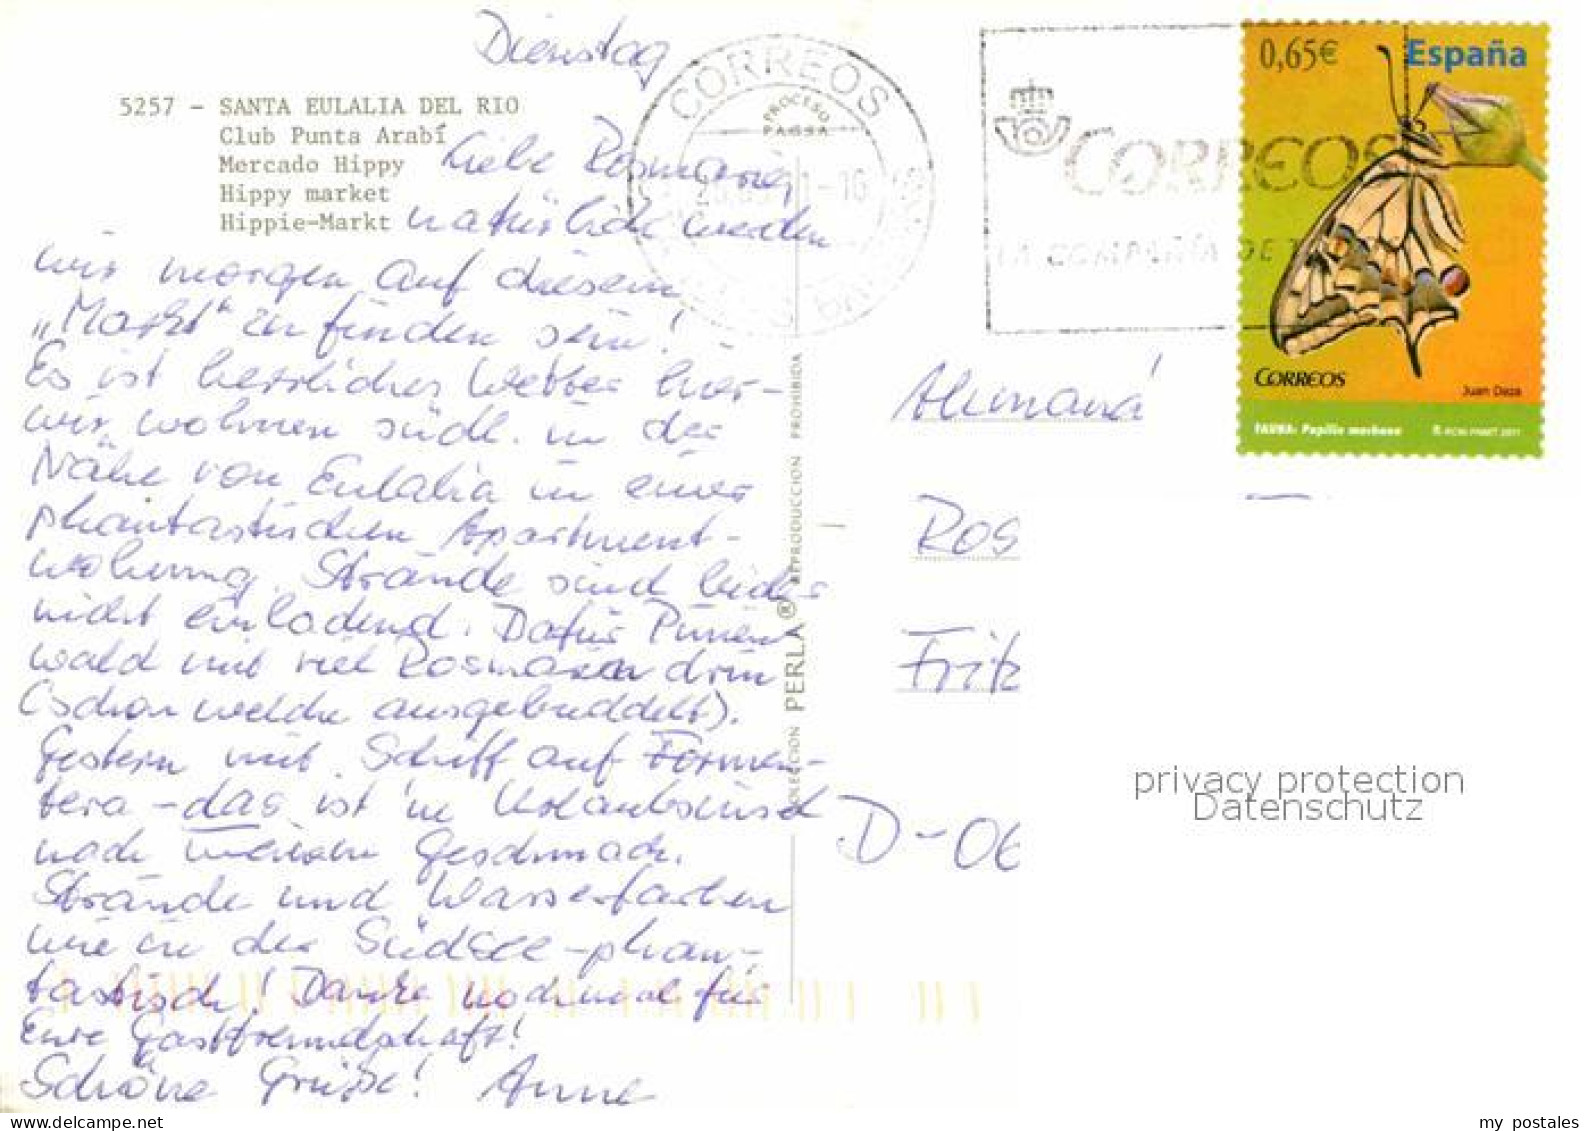 Dienstag
5257 - SANTA EULALIA DEL RIO
Club Punta Arabí
Mercado Hippy
Hippy market
Hippie-Markt
CORREOS
PROCESO
CORREOS
LA COMPAÑÍA DE
0,65€ España
CORREOS
Juan Daza
FAUNA: Papilio machaon
R.C.M.-FNMT 2011
Liebe Rosmarie,
natürlich werden
wir morgen auf diesem
„Markt“ zu finden sein!
Es ist herrliches Wetter hier-
wir wohnen südl. in der
Nähe von Eulalia in einer
phantastischen Apartment-
wohnung. Strände sind leider
nicht einladend. Dafür Pinien
wald mit viel Rosmarin drin
(schon welche ausgebuddelt).
Gestern mit Schiff auf Formen-
tera - das ist 'ne Urlaubsinsel
nach meinem Geschmack.
Strände und Wasserfarben
wie in der Südsee - phan-
tastisch! Danke nochmal für
Eure Gastfreundschaft!
Schöne Grüße! Anne
COLECCION PERLA® REPRODUCCION PROHIBIDA
Alemaná
Ros
Fritz
D-06
privacy protection
Datenschutz
my postales